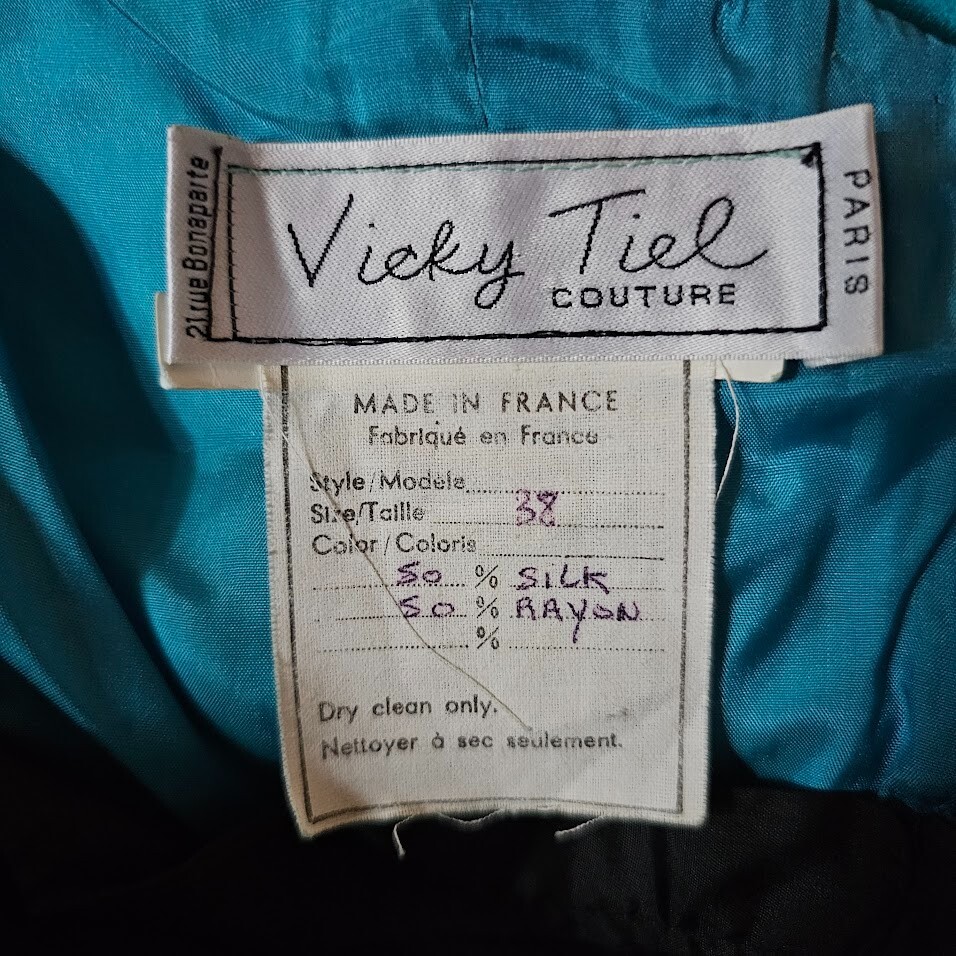 21 rue Bonaparte
Vicky Tiel
COUTURE
PARIS
MADE IN FRANCE
Fabriqué en France
Style/Modèle
Size/Taille 38
Color/Coloris
50 % SILK
50 % RAYON
%
Dry clean only.
Nettoyer à sec seulement.